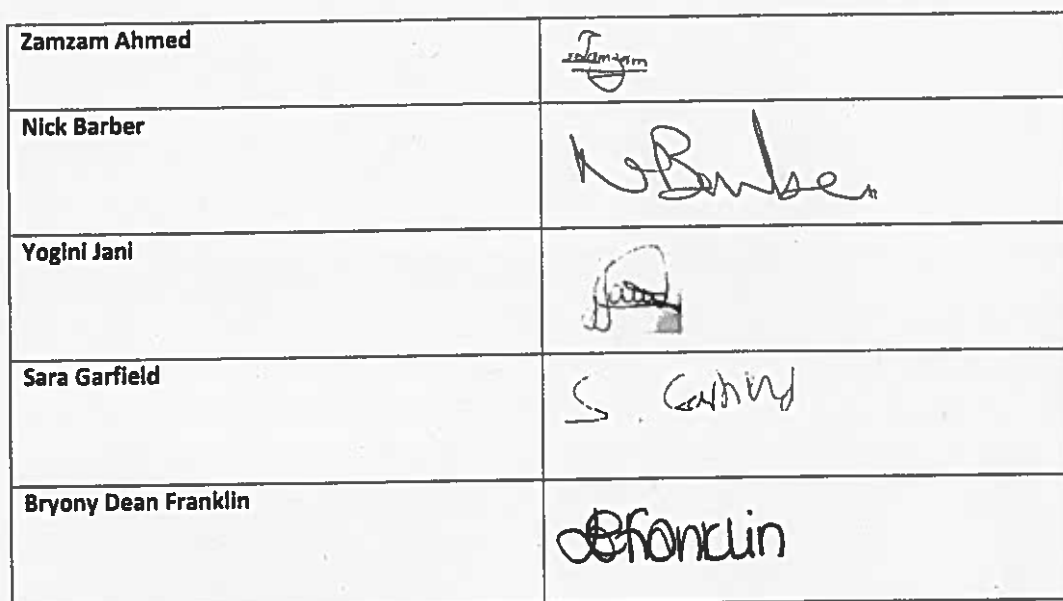 Zamzam Ahmed
Zamzam
Nick Barber
N Barber
Yogini Jani
Sara Garfield
S. Garfield
Bryony Dean Franklin
BFranklin